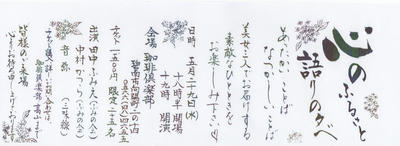 心のふるさと
語りの夕べ
あったかいことば
なつかしいことば
美女三人でお届けする
素敵なひとときを
お楽しみ下さい
日時 五月二十九日(水)
十八時半 開場
十九時 開演
会場 珈琲倶楽部
チケット 一五〇〇円 限定二十五名
出演 田中ふみえ(ふみの会)
中村かつら(ふみの会)
音弥(三味線)
皆様のご来場
心よりお待ち申し上げております